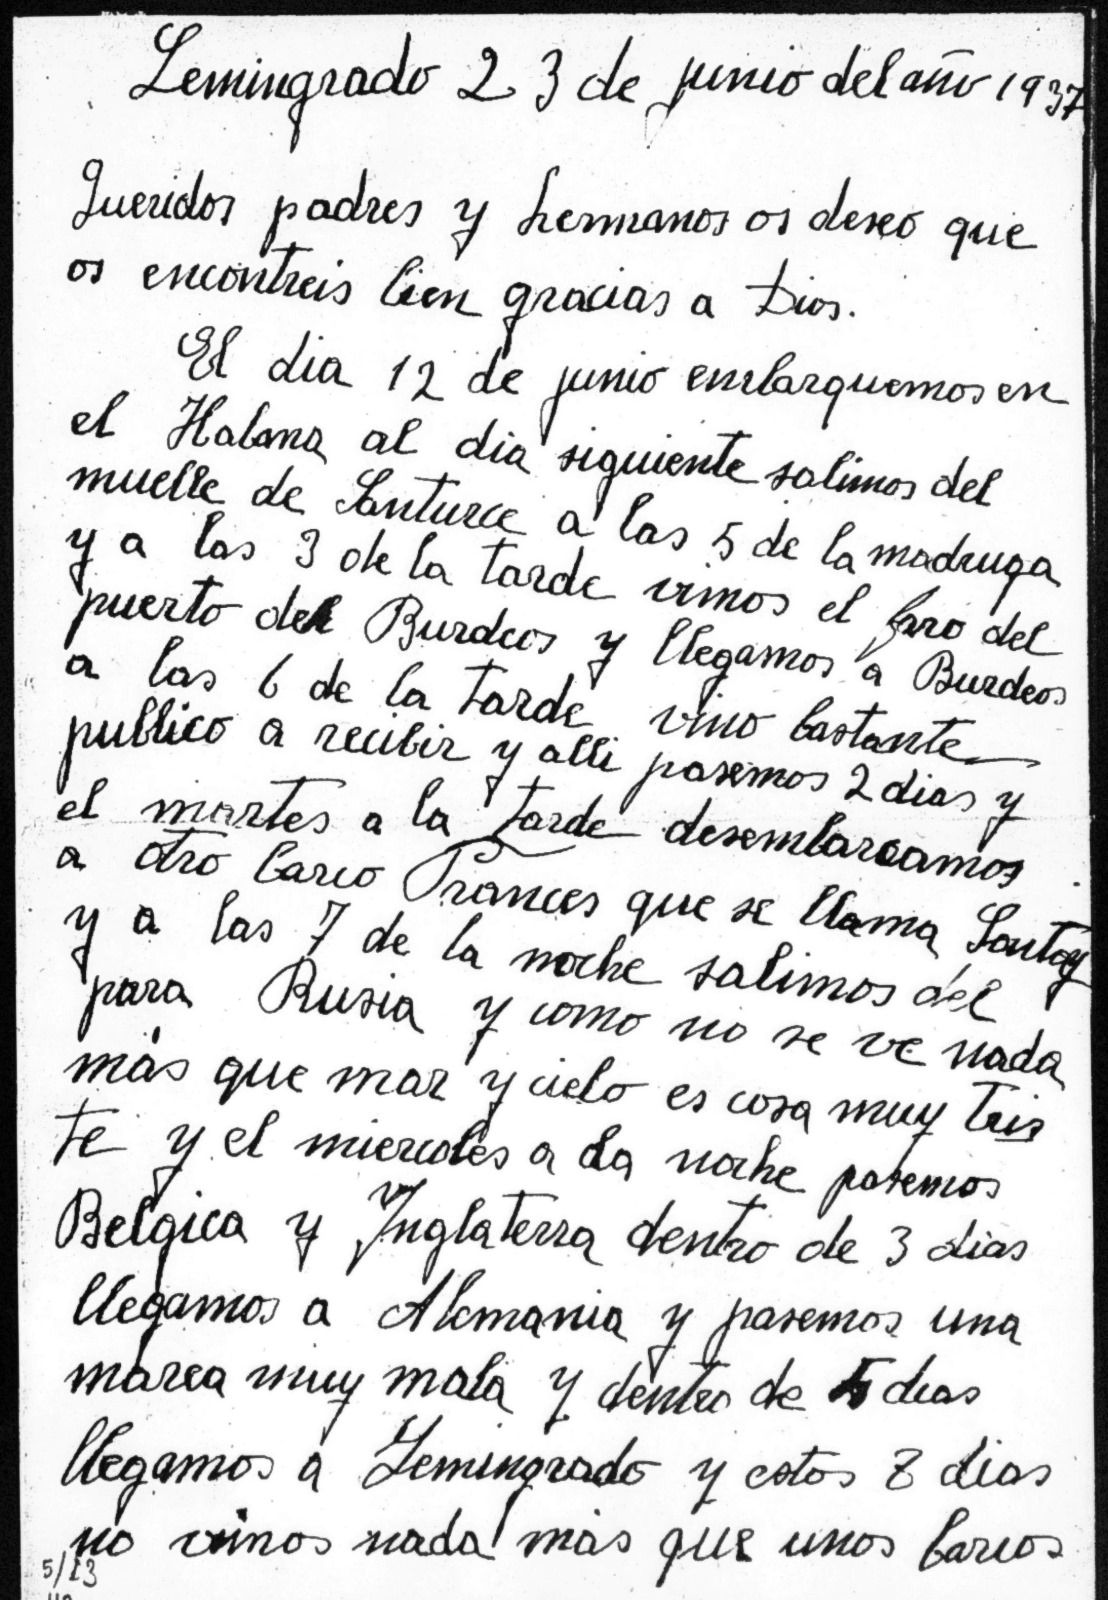 Lemingrado 23 de junio del año 1937
Queridos padres y hermanos os deseo que
os encontreis bien gracias a Dios.
El dia 12 de junio embarquemos en
el Habana al dia siguiente salimos del
muelle de Santurce a las 5 de la madruga
y a las 3 de la tarde vimos el faro del
puerto del Burdeos y llegamos a Burdeos
a las 6 de la tarde vino bastante
publico a recibir y alli pasemos 2 dias y
el martes a la tarde desembarcamos
a otro barco Frances que se llama Santay
y a las 7 de la noche salimos del
para Rusia y como no se ve nada
más que mar y cielo es cosa muy tris
te y el miercoles a la noche pasemos
Belgica y Inglaterra dentro de 3 dias
llegamos a Alemania y pasemos una
marea muy mala y dentro de 5 dias
llegamos a Lemingrado y estos 8 dias
no vimos nada más que unos barcos
5/13